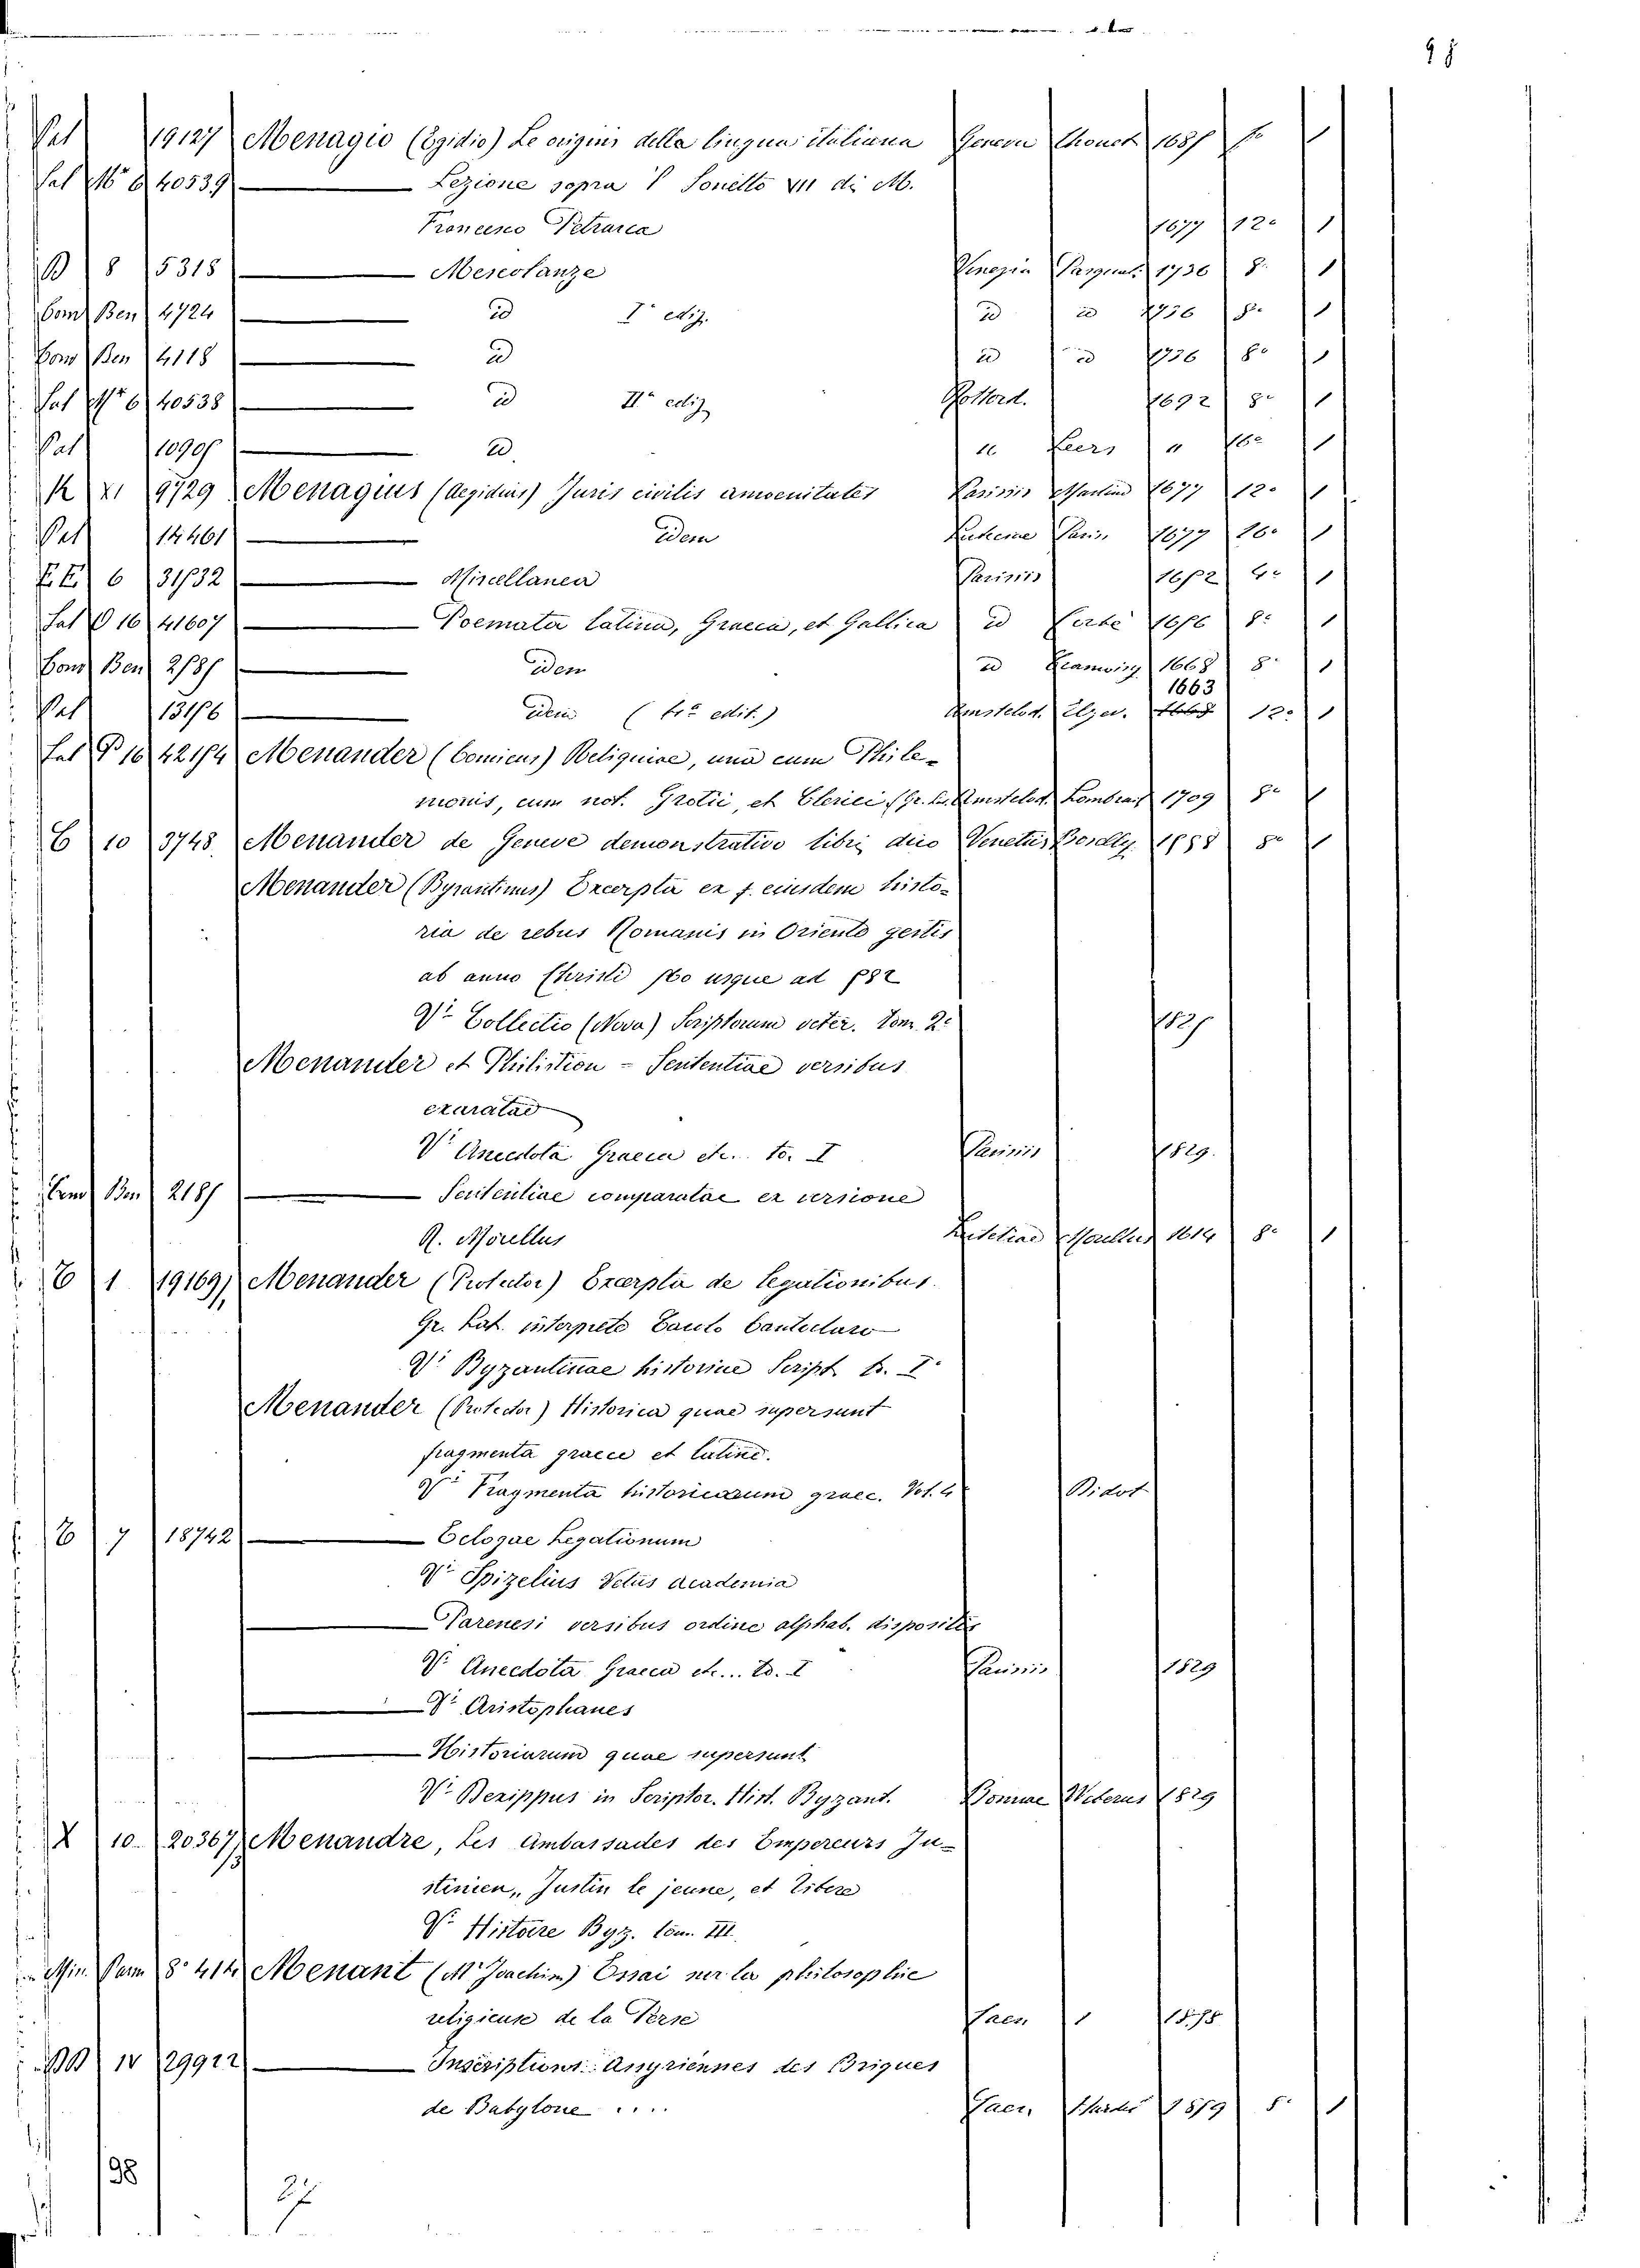 98
Pal 19127 Menagio (Egidio) Le origini della lingua italiana Geneva Chouet 1685 fo 1
Sal No 6 40539 Lezione sopra 'l Sonetto VII di M.
Francesco Petrarca 1677 12o 1
B 8 5318 Mescolanze Venezia Pasquali 1736 8o 1
Com Ben 4724 id Ia ediz. id id 1736 8o 1
Com Ben 4118 id id id 1736 8o 1
Sal No 6 40538 id IIa ediz Rotterd. 1692 8o 1
Pal 10905 id. " Leers " 16o 1
K XI 9729 Menagius (Aegidius) Juris civilis amoenitates Parisiis Martin 1677 12o 1
Pal 14461 idem Lutetiae Paris. 1677 16o 1
E. E. 6 31532 Miscellanea Parisiis 1652 4o 1
Sal D 16 41607 Poemata latina, Graeca, et Gallica id 1656 8o 1
Com Ben 2785 idem id 1668 8o 1
Pal 13156 idem ( edit.) Amstelod. Elzev. 1663 12o 1
Sal P 16 42154 Menander (Comicus) Reliquiae, una cum Phile-
monis, cum not. Grotii, et Clerici (Gr. L. Amstelod. Lombrail 1709 8o 1
C 10 3748. Menander de Geneve demonstrativo libri duo Venetiis 1558 8o 1
Menander (Byzantinus) Excerpta ex f. eiusdem histo-
ria de rebus Romanis in Oriente gestis
ab anno Christi 560 usque ad 582
Vi Collectio (Nova) Scriptorum veter. Tom. 2o 1827
Menander et Philistion - Sententiae versibus
exaratae
Vi Anecdota Graeca etc. to. I Parisiis 1829.
Com Ben 2185 Sententiae comparatae ex versione
R. Morellus Lutetiae Morellus 1614 8o 1
C 1 19169, Menander (Protector) Excerpta de legationibus.
Gr. Lat. interprete Carolo Cantoclaro
Vi Byzantinae historiae Script to. Io
Menander (Protector) Historica quae supersunt
fragmenta graece et latine.
Vi Fragmenta historicorum graec. Vol. 4 Didot
C 7 18742 Eclogae Legationum
Vi Spizelius Vetus Academia
Parenesi versibus ordine alphab. dispositis
Vi Anecdota Graeca etc... to. I Parisiis 1829
Vi Aristophanes
Historiarum quae supersunt
Vi Dexippus in Scriptor. Hist. Byzant. Bonnae Weberus 1829
X 10. 20367 Menandre, Les Ambassades des Empereurs Ju-
stinien, Justin le jeune, et Tibere
Vi Histoire Byz. tom. III.
Min. Pam 8o 414 Menant (Mr Joachim) Essai sur la philosophie
religieuse de la Perse Caen
BB IV 29912 Inscriptions Assyriennes des Briques
de Babylone .... Caen, Hardel 1859 8o 1
98
27